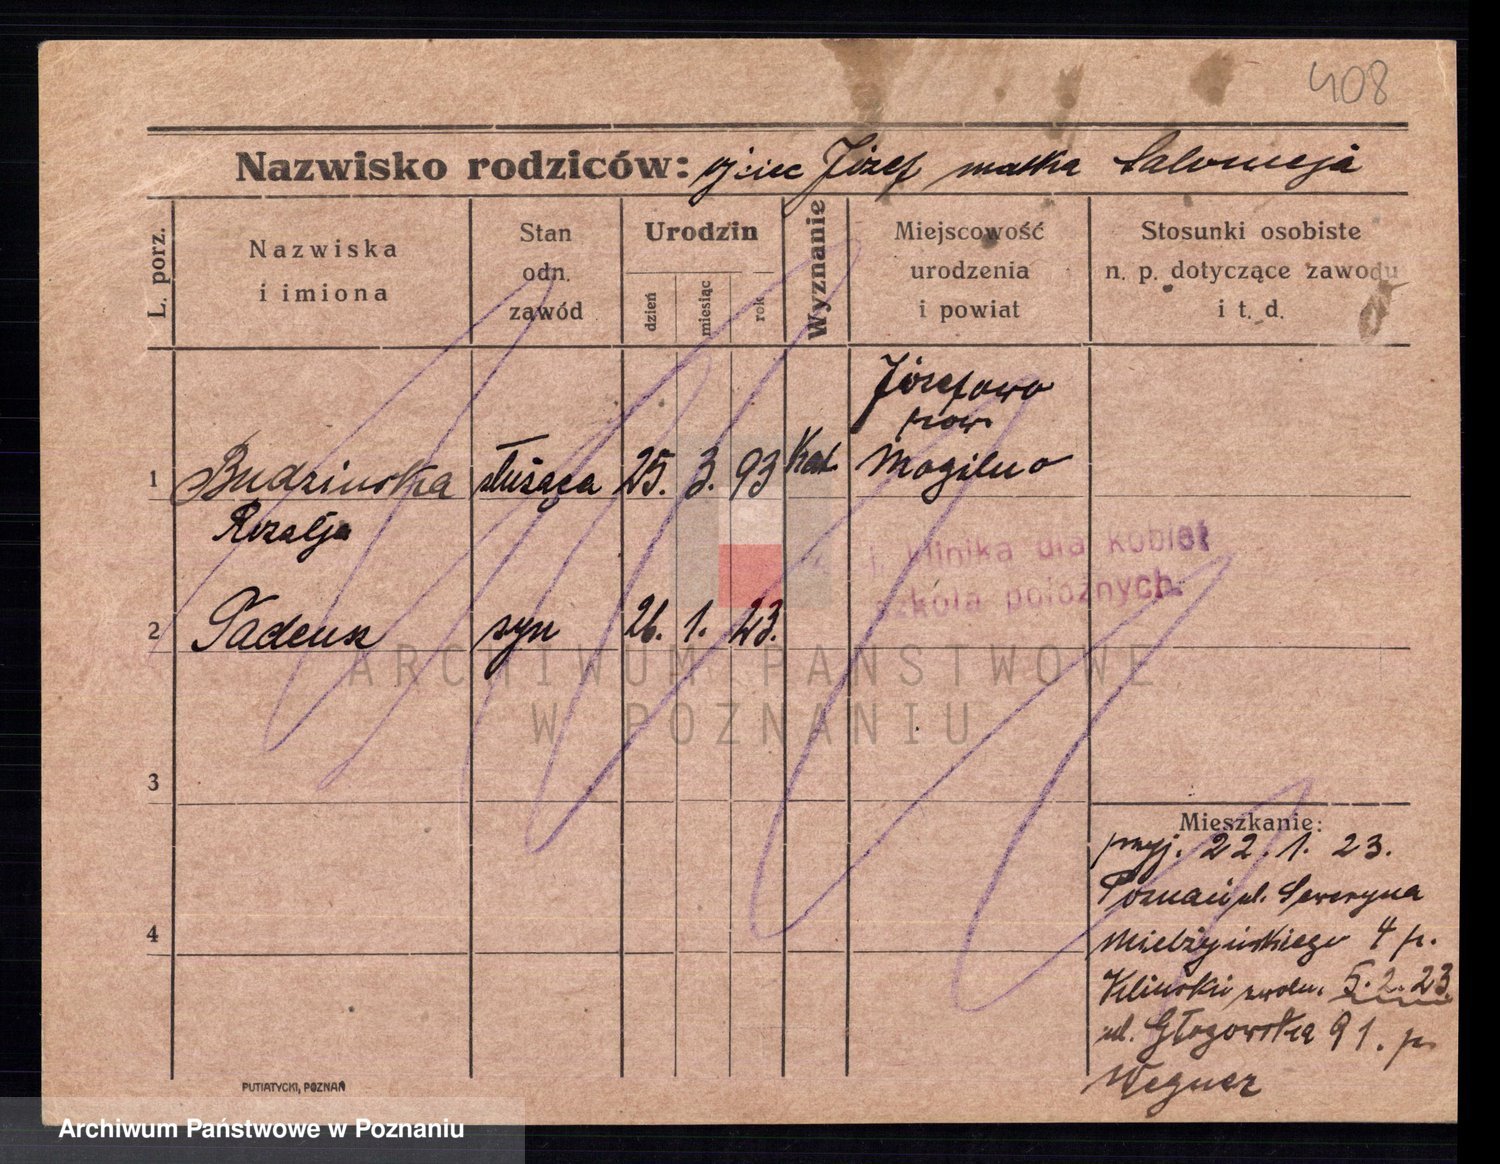 408
Nazwisko rodziców: ojciec Józef matka Salomeja
L. porz.
Nazwiska
i imiona
Stan
odn.
zawód
Urodzin
dzień
miesiąc
rok
Wyznanie
Miejscowość
urodzenia
i powiat
Stosunki osobiste
n. p. dotyczące zawodu
i t. d.
Józefowo
pow.
1 Budzinska służąca 25. 3. 93 Kat. Mogilno
Rozalja
I. klinika dla kobiet
szkoła położnych.
2 Tadeusz syn 26. 1. 23.
ARCHIWUM PAŃSTWOWE
W POZNANIU
3
Mieszkanie:
przyj. 22. 1. 23.
Poznań ul. Seweryna
4
Mielżyńskiego 4 p.
Kliński zwoln. 5. 2. 23.
ul. Głogowska 91. p.
Wegner
PUTIATYCKI, POZNAŃ
Archiwum Państwowe w Poznaniu